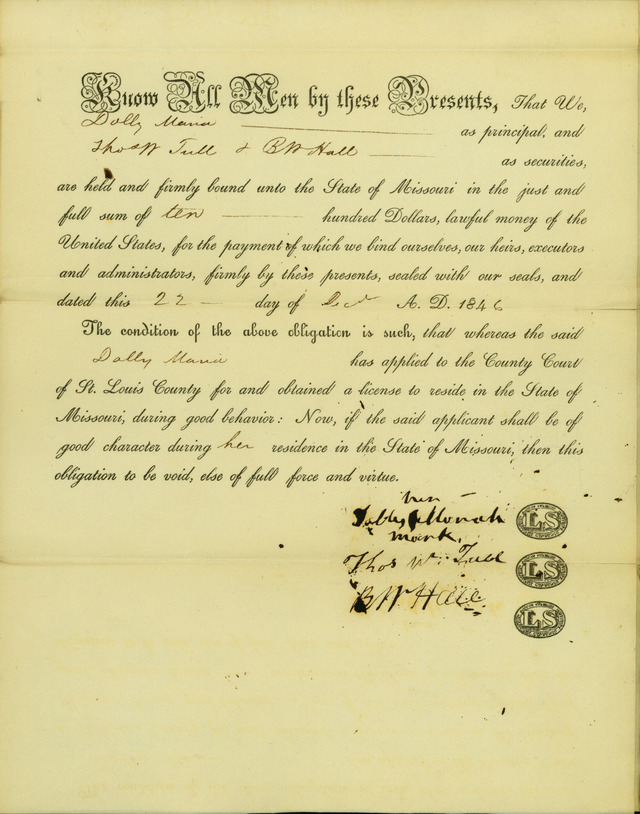 Know All Men by these Presents, That We,
Dolly Maria as principal, and
Thos W Tull & BW Hall as securities,
are held and firmly bound unto the State of Missouri in the just and
full sum of ten hundred Dollars, lawful money of the
United States, for the payment of which we bind ourselves, our heirs, executors
and administrators, firmly by these presents, sealed with our seals, and
dated this 22 day of Dec A. D. 1846
The condition of the above obligation is such, that whereas the said
Dolly Maria has applied to the County Court
of St. Louis County for and obtained a license to reside in the State of
Missouri, during good behavior: Now, if the said applicant shall be of
good character during her residence in the State of Missouri, then this
obligation to be void, else of full force and virtue.
her
Dolly
mark.
LS
Thos W. Tull
LS
BW Hall
LS